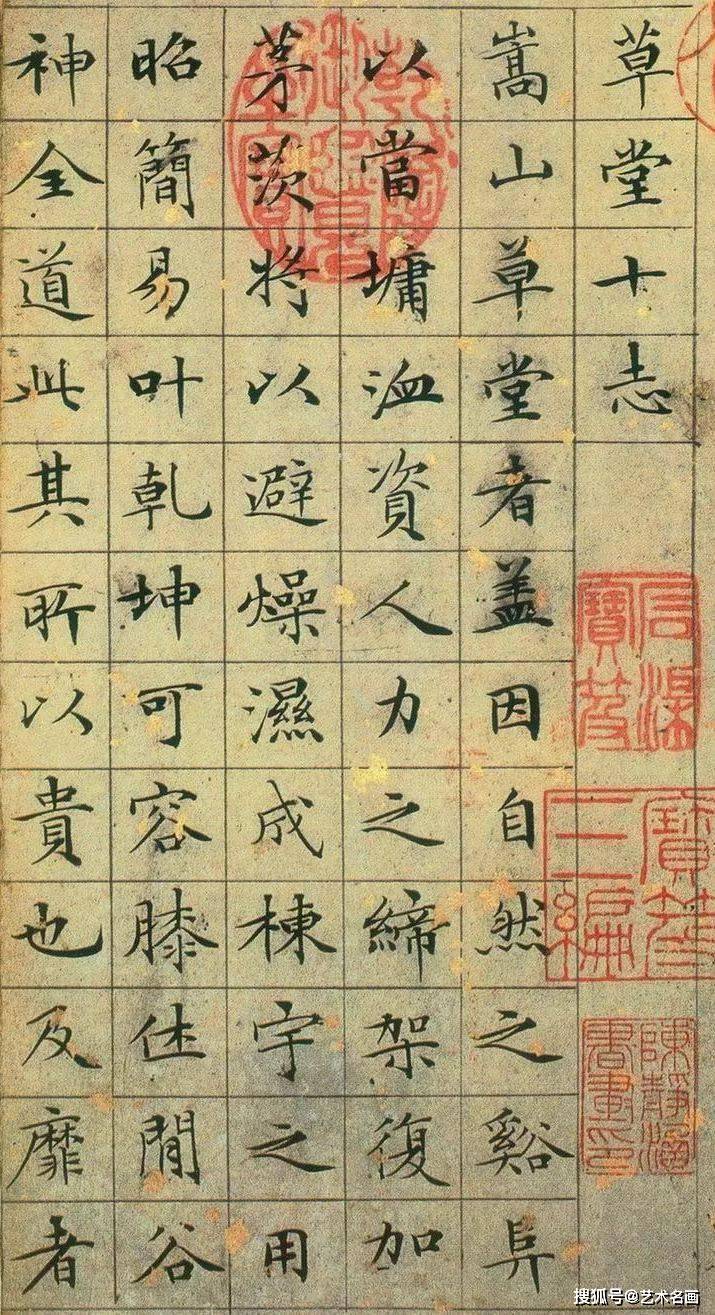 草堂十志
嵩山草堂者盖因自然之谿阜
以當墉洫資人力之締架復加
茅茨将以避燥濕成棟宇之用
昭簡易叶乾坤可容膝休閒谷
神全道此其所以貴也及靡者
石渠寶笈
寶笈三編
搜狐号@艺术名画